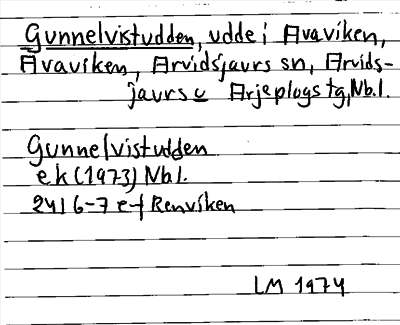 Gunnelvistudden, udde i Avaviken,
Avaviken, Arvidsjaurs sn, Arvids-
jaurs o Arjeplogs tg, Nb.l.
Gunnelvistudden
e.k (1973) Nbl.
24I 6-7 e-f Renviken
LM 1974